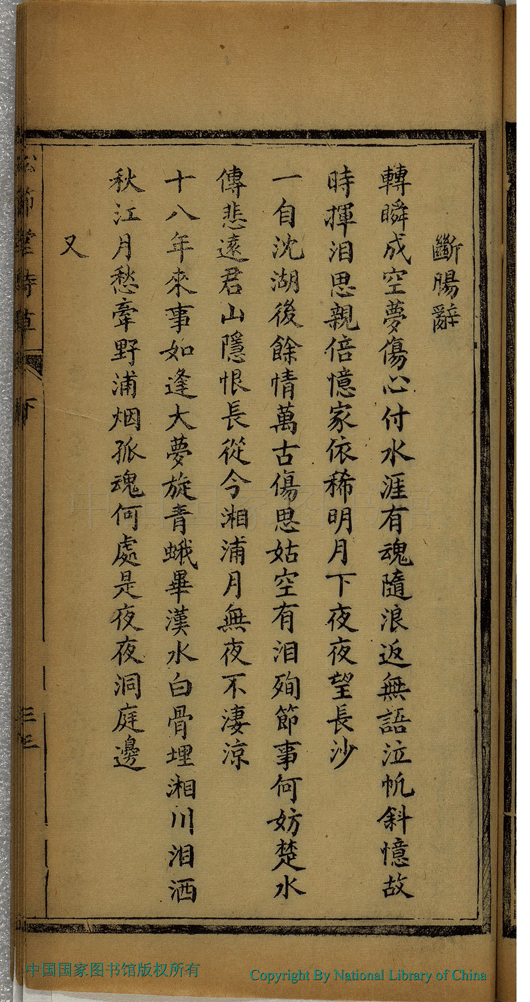 斷腸辭
轉瞬成空夢傷心付水涯有魂隨浪返無語泣帆斜憶故
時揮泪思親倍憶家依稀明月下夜夜望長沙
一自沈湖後餘情萬古傷思姑空有泪殉節事何妨楚水
傳悲遠君山隱恨長從今湘浦月無夜不淒涼
十八年來事如逢大夢旋青蛾畢漢水白骨埋湘川泪洒
秋江月愁牽野浦烟孤魂何處是夜夜洞庭邊
又
節堂詩草
下
三三
中国国家图书馆版权所有
Copyright By National Library of China